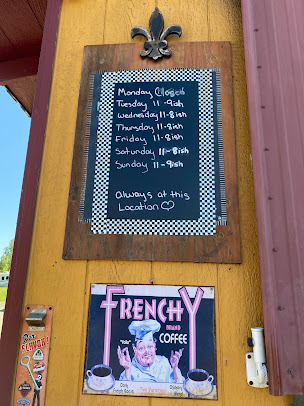 Monday Closed
Tuesday 11-9ish
Wednesday 11-8ish
Thursday 11-8ish
Friday 11-8ish
Saturday 11-8ish
Sunday 11-8ish
Always at this
Location ♡
FRENCHY
BRAND
COFFEE